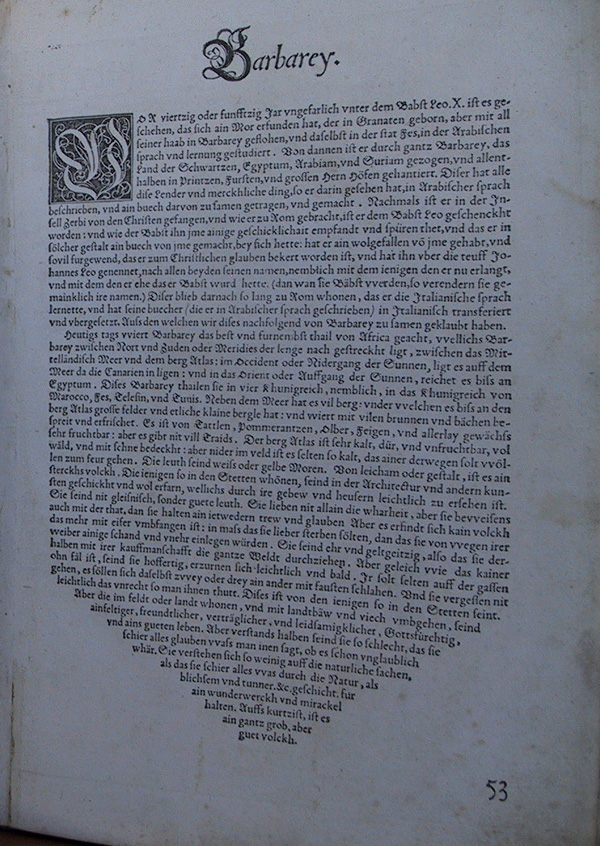 Barbarey.
VOR viertzig oder funfftzig Jar vngefarlich vnter dem Babst Leo. X. ist es ge-
schehen, das sich ain Mor erfunden hat, der in Granaten geborn, aber mit all
seiner haab in Barbarey geflohen, vnd daselbst in der stat Fes, in der Arabischen
sprach vnd lernung gestudiert. Von dannen ist er durch gantz Barbarey, das
Land der Schwartzen, Egyptum, Arabiam, vnd Suriam gezogen, vnd allent-
halben in Printzen, Fursten, vnd grossen Hern Höfen gehantiert. Diser hat alle
dise Lender vnd merckhliche ding, so er darin gesehen hat, in Arabischer sprach
beschrieben, vnd ain buech darvon zu samen getragen, vnd gemacht. Nachmals ist er in der In-
sell Zerbi von den Christen gefangen, vnd wie er zu Rom gebracht, ist er dem Babst Leo geschenckht
worden: vnd wie der Babst ihn jme ainige geschicklichait empfandt vnd spüren thet, vnd das er in
sölcher gestalt ain buech von jme gemacht, bey sich hette: hat er ain wolgefallen vō jme gehabt, vnd
sovil furgewend, das er zum Christlichen glauben bekert worden ist, vnd hat ihn vber die teuff Jo-
hannes Leo genennet, nach allen beyden seinen namen, nemblich mit dem ienigen den er nu erlangt,
vnd mit dem den er ehe das er Babst wurd hette. (dan wan sie Bäbst vverden, so verendern sie ge-
mainklich ire namen.) Diser blieb darnach so lang zu Rom whonen, das er die Italianische sprach
lernette, vnd hat seine buecher (die er in Arabischer sprach geschrieben) in Italianisch transferiert
vnd vbergesetzt. Aus den welchen wir dises nachfolgend von Barbarey zu samen geklaubt haben.
Heutigs tags vviert Barbarey das best vnd furnembst thail von Africa geacht, vvellichs Bar-
barey zwischen Nort vnd Zuden oder Meridies der lenge nach gestreckht ligt, zwischen das Mit-
telländisch Meer vnd dem berg Atlas: im Occident oder Nidergang der Sunnen, ligt es auff dem
Meer da die Canarien in ligen: vnd in das Orient oder Auffgang der Sunnen, reichet es biss an
Egyptum. Dises Barbarey thailen sie in vier Khunigreich, nemblich, in das Khunigreich von
Marocco, Fes, Telesin, vnd Tunis. Neben dem Meer hat es vil berg: vnder vvelchen es biss an den
berg Atlas grosse felder vnd etliche klaine bergle hat: vnd wiert mit vilen brunnen vnd bächen be-
spreit vnd erfrischet. Es ist von Tattlen, Pommerantzen, Olber, Feigen, vnd allerlay gewächss
sehr fruchtbar: aber es gibt nit vill Traids. Der berg Atlas ist sehr kalt, dür, vnd vnfruchtbar, vol
wäld, vnd mit schne bedeckht: aber nider im veld ist es selten so kalt, das ainer derwegen solt vvöl-
len zum feur gehen. Die leuth seind weiss oder gelbe Moren. Von leicham oder gestalt, ist es ain
sterckhs volckh. Die ienigen so in den Stetten whönen, seind in der Architectur vnd andern kun-
sten geschickht vnd wol erfarn, wellichs durch ire gebew vnd heusern leichtlich zu ersehen ist.
Sie seind nit gleisnisch, sonder guete leuth. Sie lieben nit allain die wharheit, aber sie bevveisens
auch mit der that, dan sie halten ain ietwedern trew vnd glauben Aber es erfindt sich kain volckh
das mehr mit eifer vmbfangen ist: in mass das sie lieber sterben sölten, dan das sie von vvegen irer
weiber ainige schand vnd vnehr einlegen würden. Sie seind ehr vnd geltgeitzig, also das sie der-
halben mit irer kauffmanschafft die gantze Weldt durchziehen. Aber geleich vvie das kainer
ohn fäl ist, seind sie hoffertig, erzurnen sich leichtlich vnd bald. Ir solt selten auff der gassen
gehen, es söllen sich daselbst zvvey oder drey ain ander mit fausten schlahen. Vnd sie vergessen nit
leichtlich das vnrecht so man ihnen thutt. Dises ist von den ienigen so in den Stetten seint.
Aber die im feldt oder landt whonen, vnd mit landtbäw vnd viech vmbgehen, seind
ainfeltiger, freundtlicher, verträglicher, vnd leidsamigklicher, Gottsfürchtig,
vnd ains gueten leben. Aber verstands halben seind sie so schlecht, das sie
schier alles glauben vvass man inen sagt, ob es schon vnglaublich
whär. Sie verstehen sich so weinig auff die naturliche sachen,
als das sie schier alles vvas durch die Natur, als
blichsem vnd tunner. &c. geschicht. fur
ain wunderwerckh vnd mirackel
halten. Auffs kurtzist, ist es
ain gantz grob, aber
guet volckh.
53